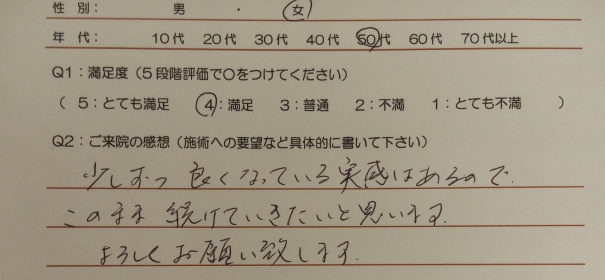 性 別： 男 ・ 女
年 代： 10代 20代 30代 40代 50代 60代 70代以上
Q1：満足度（5段階評価で○をつけてください）
（ 5：とても満足 4：満足 3：普通 2：不満 1：とても不満 ）
Q2：ご来院の感想（施術への要望など具体的に書いて下さい）
少しずつ 良くなっている実感はあるので、
このまま 続けていきたいと思います。
よろしくお願い致します。